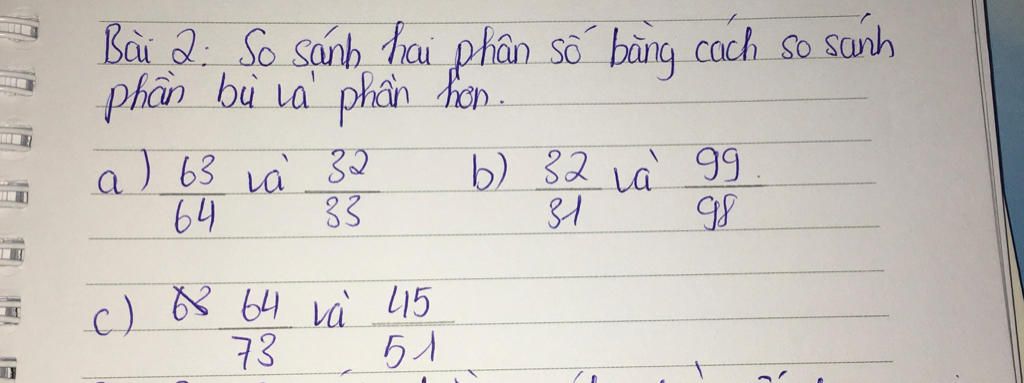 Bài 2: So sánh hai phân số bằng cách so sánh
phần bù và phần hơn.
a) 63/64 và 32/33 b) 32/31 và 99/98.
c) 64/73 và 45/51